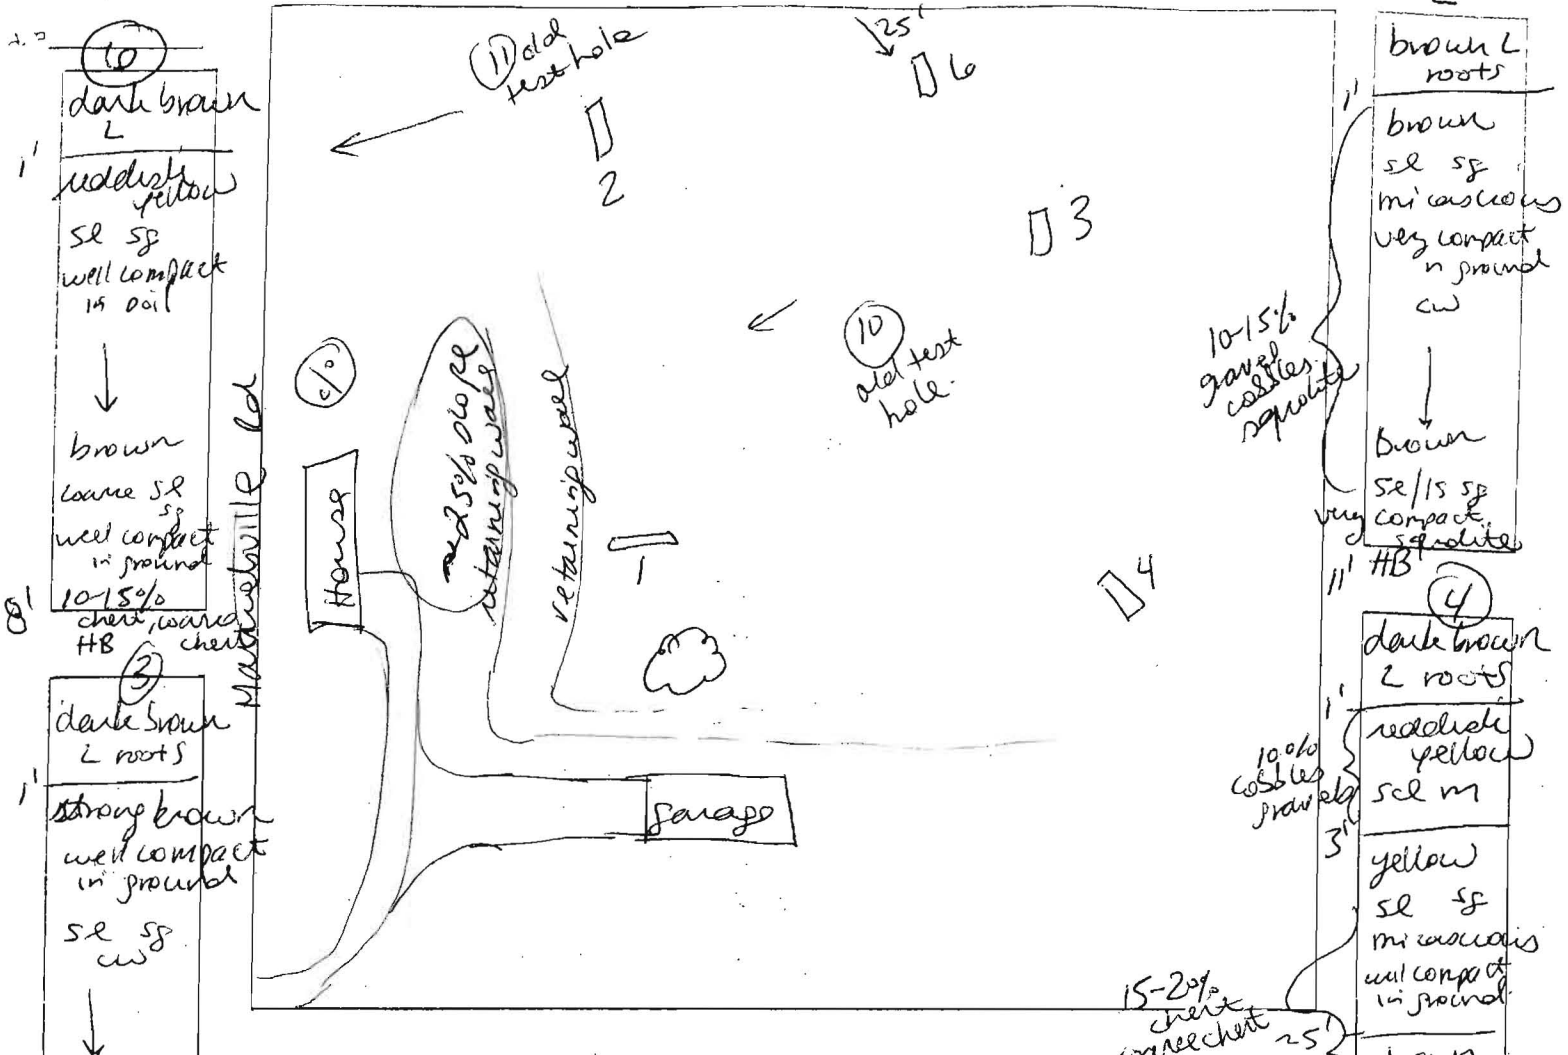 6
dark brown
L
1'
reddish
yellow
sl sg
well compact
in soil
brown
coarse sl
sg
well compact
in ground
8'
10-15%
chert, coarse
chert
HB
3
dark brown
L roots
1'
strong brown
well compact
in ground
sl sg
cw
11 old
test hole
2
25'
6
3
10
old test
hole.
~25% slope
retaining wall
retaining wall
House
1
4
garage
brown L
roots
1'
brown
sl sg
micascious
very compact
n ground
cw
10-15%
gravel
cobbles
Brown
sl/ls sg
very compact
11'
HB
4
dark brown
L roots
1'
reddish
yellow
scl m
10%
cobbles
gravels
3'
yellow
sl sg
micascious
well compact
in ground
15-20%
chert
coarse chert
~25'
brown